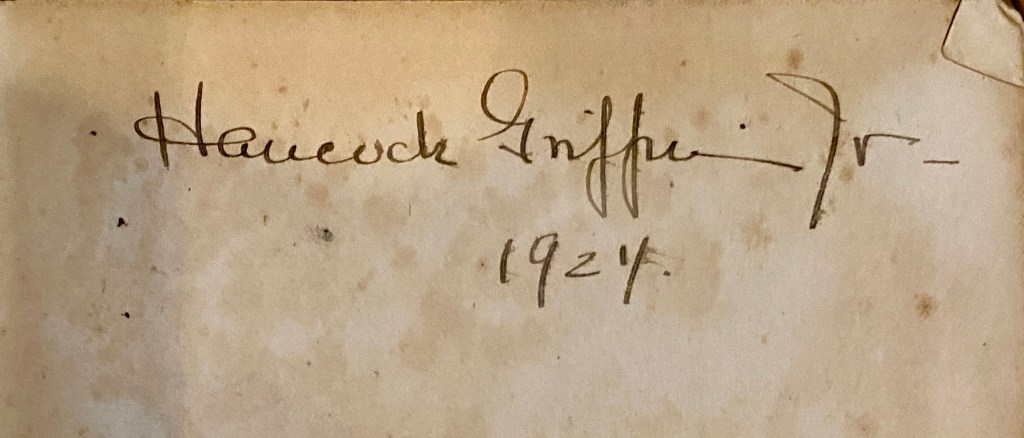 Hancock Griffin Jr-
1924.